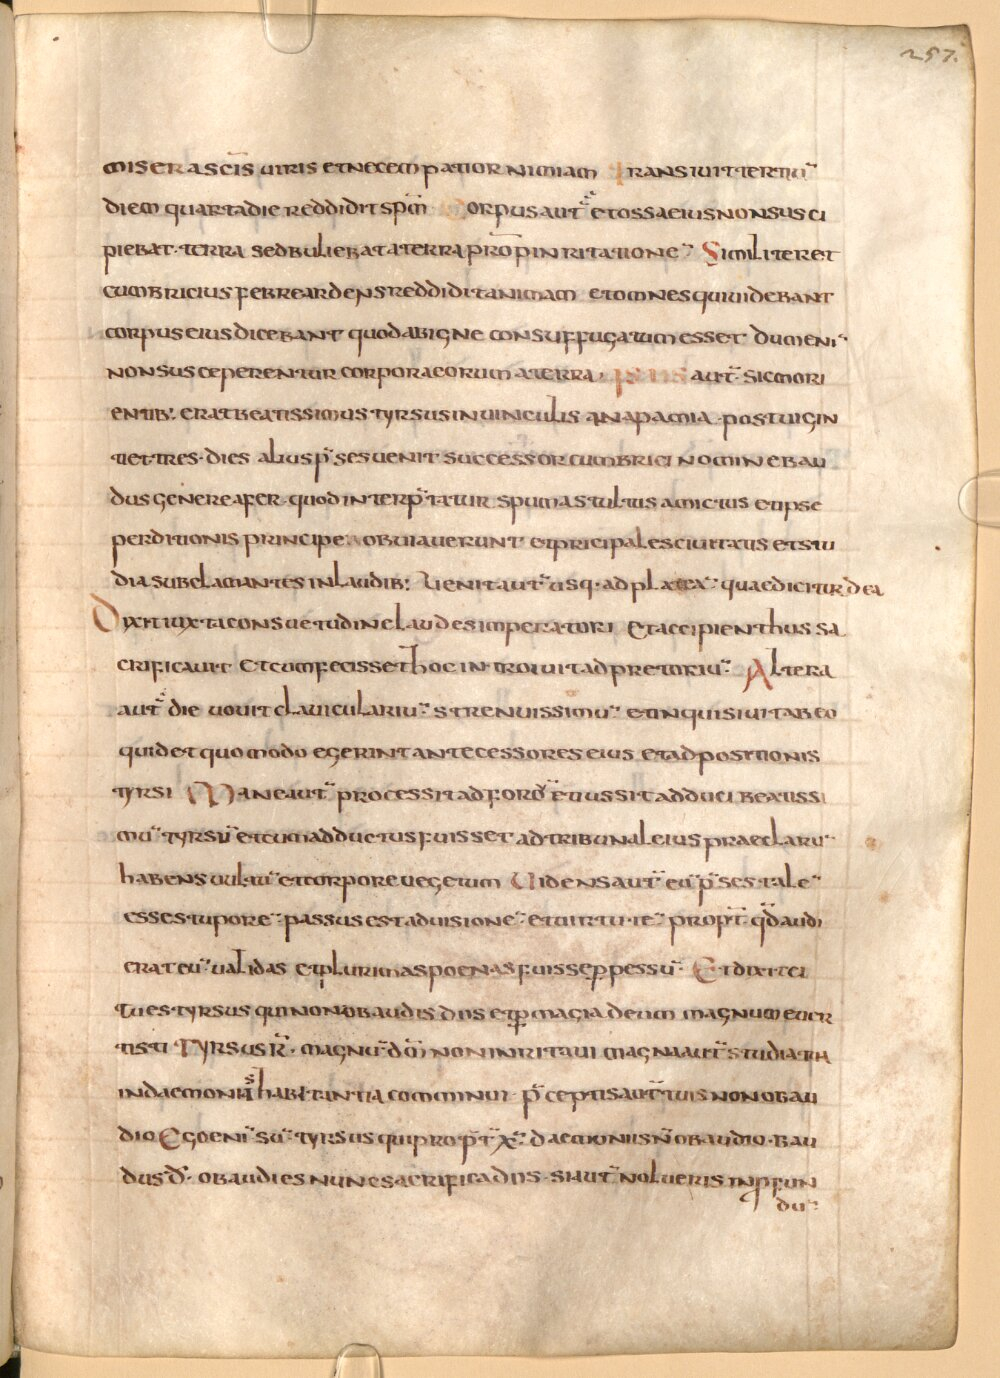 257.
miserascis uiris etnecem patior nimiam Transiuit tertiū
diem quarta die reddidit spm Corpus aut et ossa eius non susci
piebat terra sed buliebat a terra propin ritatione Similiter et
cumbricius febre ardens reddidit animam et omnes qui uidebant
corpus eius dicebant quod ab igne consuffugatum esset dum eni
non susceperentur corpora eorum a terra aut sic mori
entib erat beatissimus tyrsus in uinculis in apamia post uigin
ti et tres dies alius p̄ses uenit successor cumbrici nomine bau
dus genere afer quod interp̄tatur spuma stultus amictus et ipse
perditionis principe obuiauerunt et pricipales ciuitatis et stu
dia subclamantes in laudib: Uenit aut usq· ad plateā quae dicitur dea
Dixit iuxta consuetudine laudes imperatori Et accipien thus sa
crificauit Et cum fecisset hoc introiuit ad pretoriū Altera
aut die uouit clauiculariū strenuissimū et inquisiuit ab eo
quid et quomodo egerint antecessores eius et ad positionis
tyrsi Mane aut processit ad forō et iussit adduci beatissi
mū tyrsū et cum adductus fuisset ad tribunal eius praeclarū
habens uultū et corpore uegetum Uidens aut eū p̄ses tale
esse stupore passus est ad uisione et uirtute propt qd audi
erat eū ualidas et plurimas poenas fuisse perpessū Et dixit ei
Tu es tyrsus qui non obaudis diis et p magia deum magnum euer
tisti Tyrsus R̄ · magnū dm̄ non inritaui magna aut studia tua
in daemoniā habitantia comminui p̄ceptis aut tuis non obau
dio Ego eni sū tyrsus qui propt xp̄ daemoniis n̄ obaudio · Bau
dus d̄ · obaudi es nunc sacrifica diis · si aut nolueris in p̄fun
dū